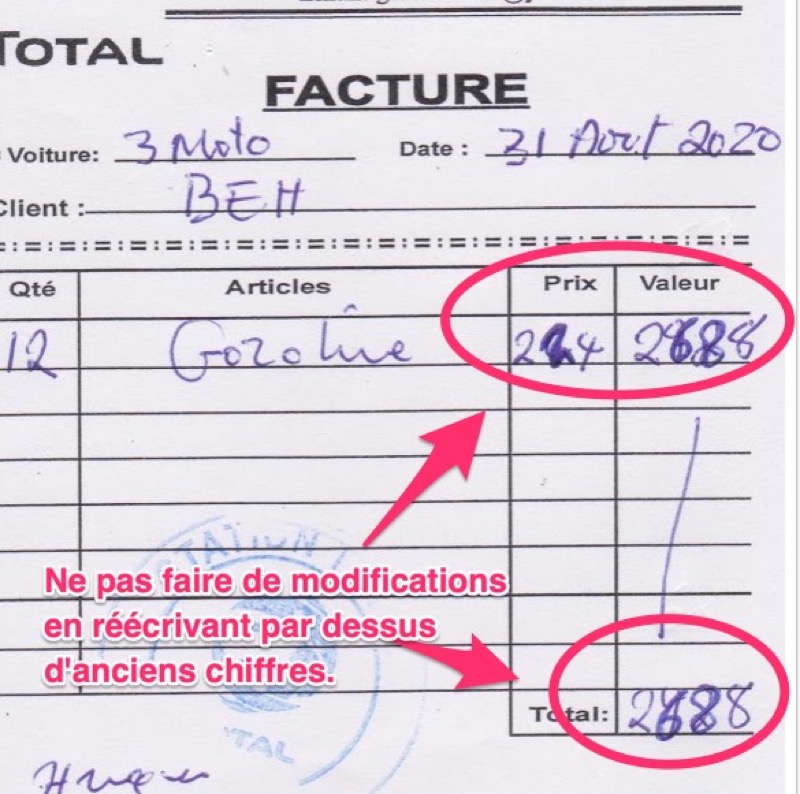 TOTAL
FACTURE
Voiture: 3 Moto Date : 31 Aout 2020
Client : BEH
Qté Articles Prix Valeur
12 Gozoline 224 2688
STATION
Ne pas faire de modifications
en réécrivant par dessus
d'anciens chiffres.
Total: 2688
TOTAL